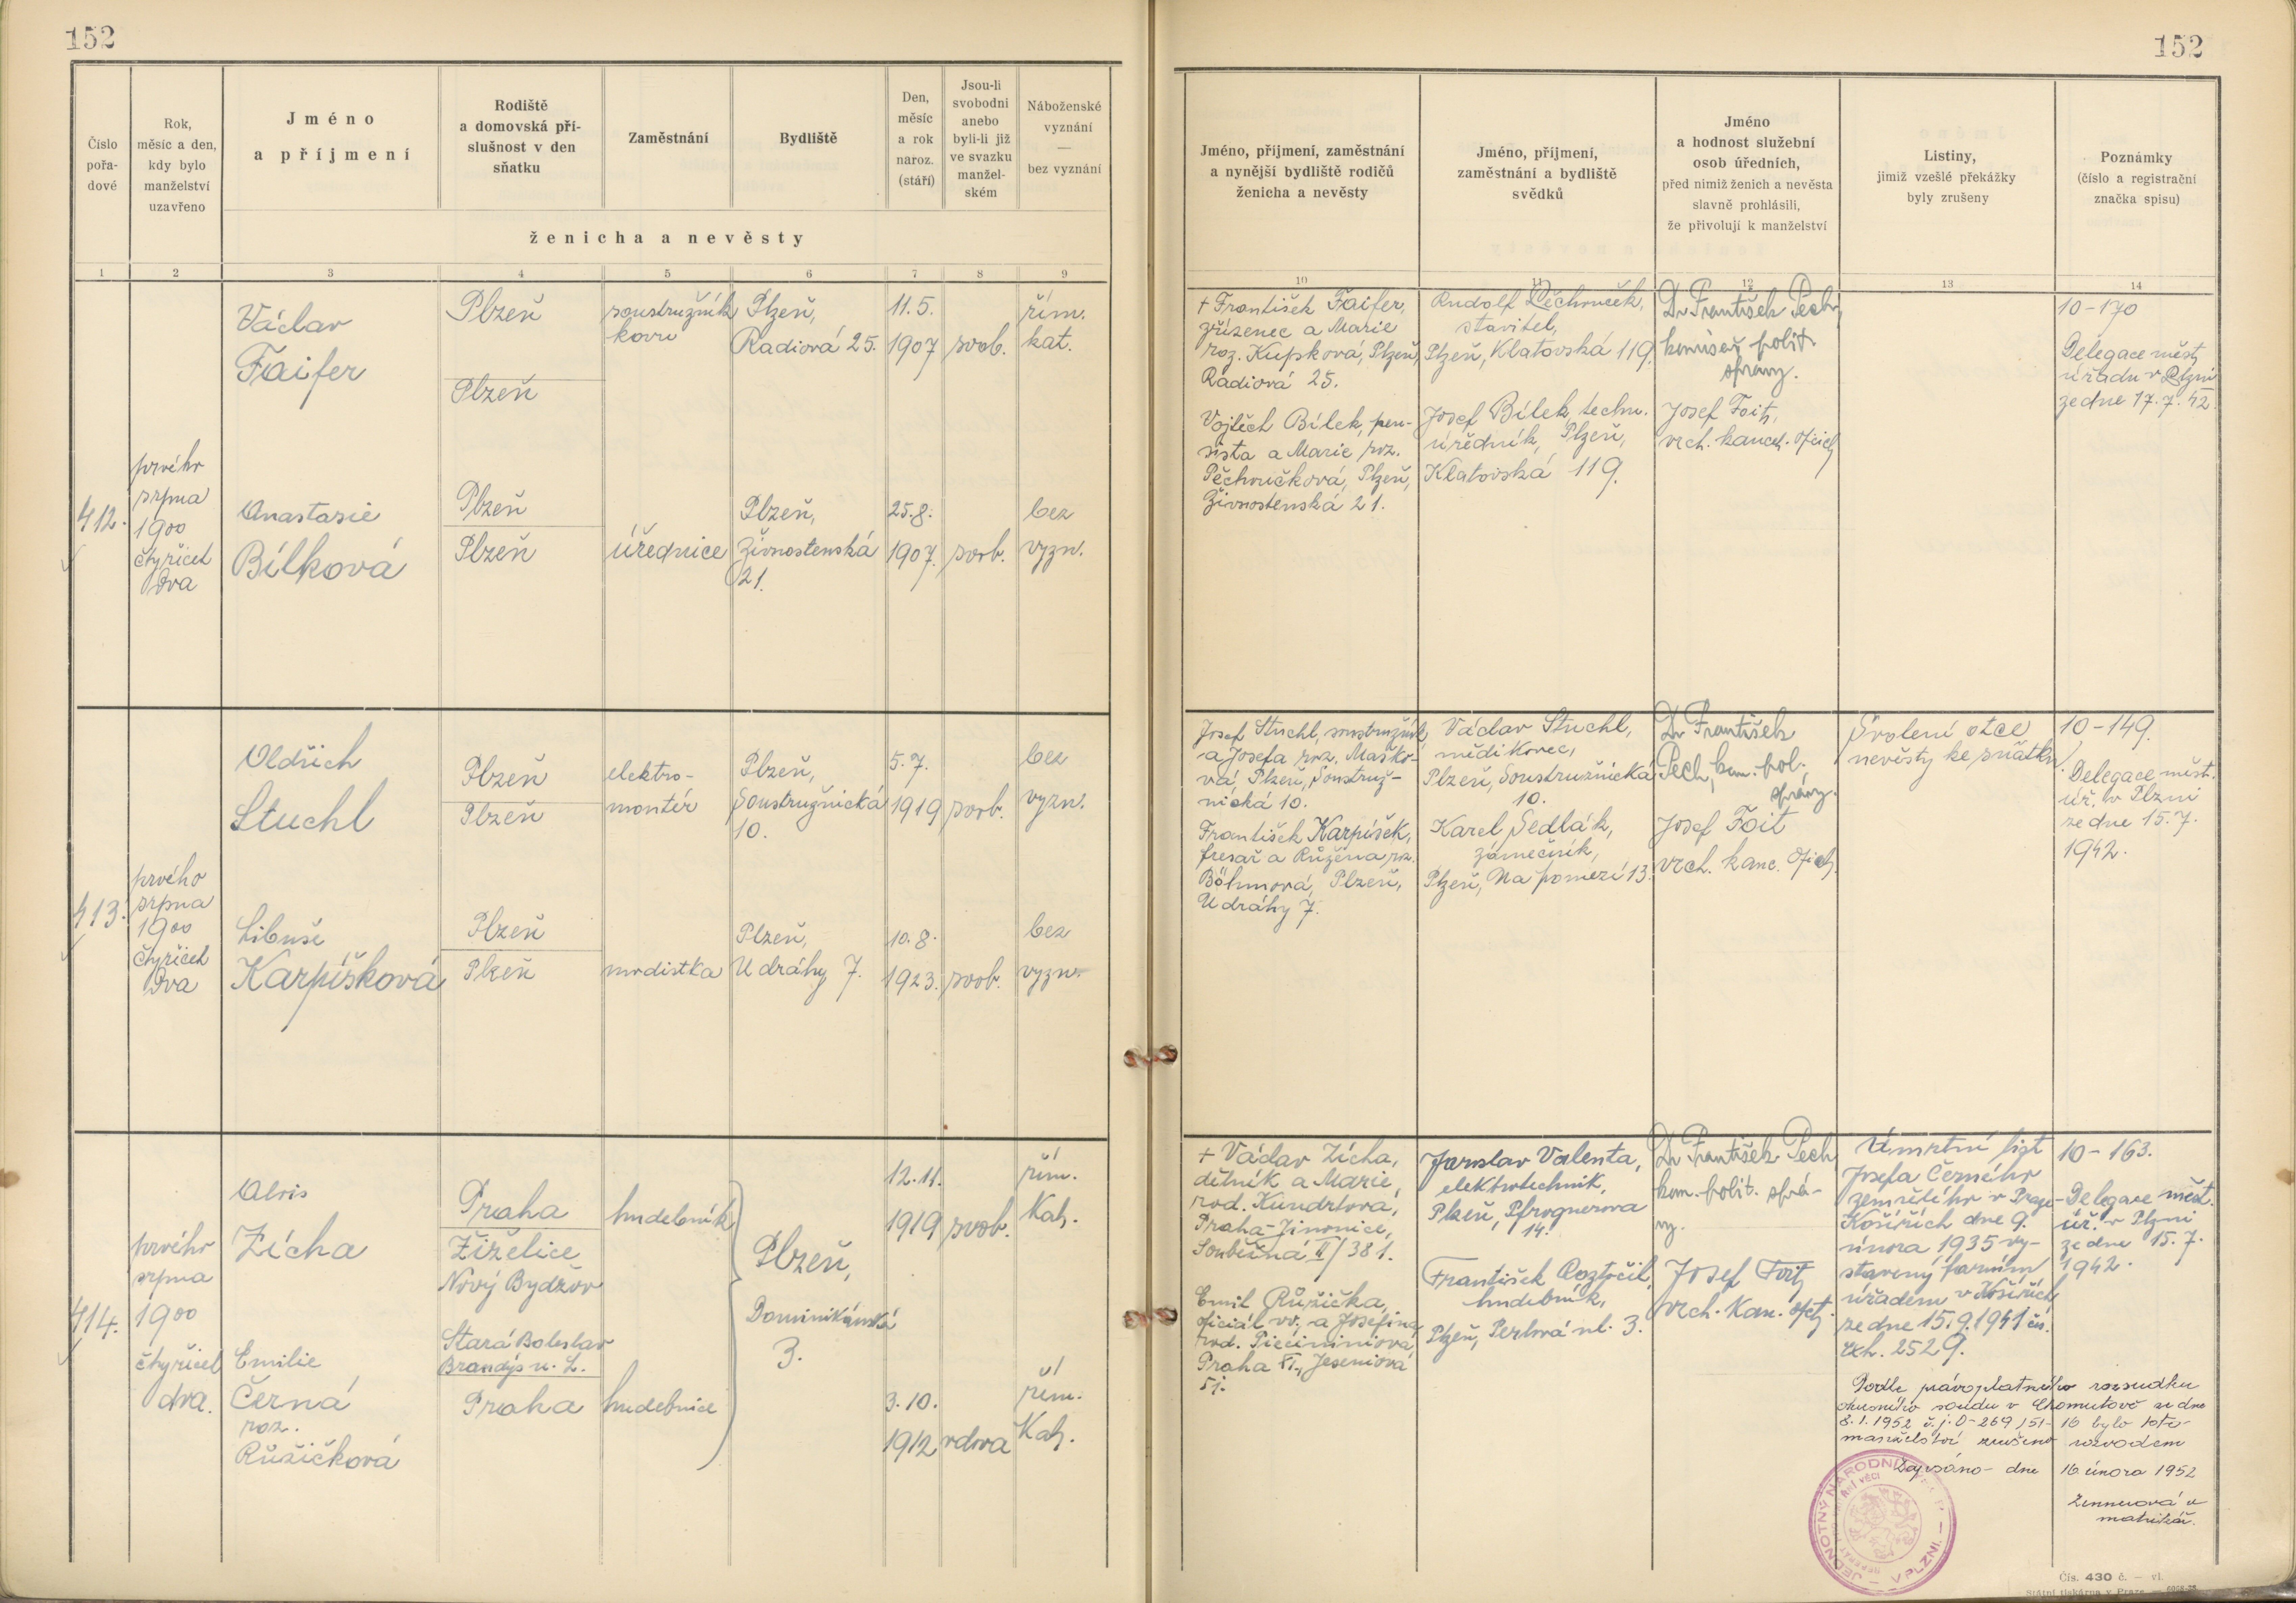 152
152
Číslo
pořa-
dové
Rok,
měsíc a den,
kdy bylo
manželství
uzavřeno
Jméno
a příjmení
Rodiště
a domovská pří-
slušnost v den
sňatku
Zaměstnání
Bydliště
Den,
měsíc
a rok
naroz.
(stáří)
Jsou-li
svobodni
anebo
byli-li již
ve svazku
manžel-
ském
Náboženské
vyznání
—
bez vyznání
ženicha a nevěsty
1 2 3 4 5 6 7 8 9
Jméno, příjmení, zaměstnání
a nynější bydliště rodičů
ženicha a nevěsty
Jméno, příjmení,
zaměstnání a bydliště
svědků
Jméno
a hodnost služební
osob úředních,
před nimiž ženich a nevěsta
slavně prohlásili,
že přivolují k manželství
Listiny,
jimiž vzešlé překážky
byly zrušeny
Poznámky
(číslo a registrační
značka spisu)
10 11 12 13 14
412.
prvého
srpna
1900
čtyřicet
dva
Václav
Faifer
Plzeň
Plzeň
soustružník
kovu
Plzeň,
Radiová 25.
11.5.
1907
svob.
řím.
kat.
Anastasie
Bílková
Plzeň
Plzeň
úřednice
Plzeň,
Živnostenská
21.
25.8.
1907.
svob.
bez
vyzn.
+ František Faifer,
zřízenec a Marie
roz. Kupková, Plzeň,
Radiová 25.
Vojtěch Bílek, pen-
sista a Marie roz.
Pěchoučková, Plzeň,
Živnostenská 21.
Rudolf Pěchouček,
stavitel,
Plzeň, Klatovská 119.
Josef Bílek, techn.
úředník, Plzeň,
Klatovská 119.
Dr František Pech,
komisař polit.
správy.
Josef Foit,
vrch. kancel. oficiál
10-170
Delegace měst.
úřadu v Plzni
ze dne 17.7.42.
413.
prvého
srpna
1900
čtyřicet
dva
Oldřich
Stuchl
Plzeň
Plzeň
elektro-
montér
Plzeň,
Soustružnická
10.
5.7.
1919
svob.
bez
vyzn.
Libuše
Karpíšková
Plzeň
Plzeň
modistka
Plzeň,
U dráhy 7.
10.8.
1923.
svob.
bez
vyzn.
Josef Stuchl, soustružník
a Josefa roz. Maško-
vá, Plzeň, Soustruž-
nická 10.
František Karpíšek,
fresař a Růžena roz.
Böhmová, Plzeň,
U dráhy 7.
Václav Stuchl,
mědikovec,
Plzeň, Soustružnická
10.
Karel Sedlák,
zámečník,
Plzeň, Na pomezí 13.
Dr František
Pech, kom. pol.
správy.
Josef Foit
vrch. kanc. ofici.
Svolení otce
nevěsty ke sňatku.
10-149.
Delegace měst.
úř. v Plzni
ze dne 15.7.
1942.
414.
prvého
srpna
1900
čtyřicet
dva.
Alois
Zícha
Praha
Žiželice
Nový Bydžov
hudebník
12.11.
1919
svob.
řím.
Kat.
Plzeň,
Dominikánská
3.
Emilie
Černá
roz.
Růžičková
Stará Boleslav
Brandýs n. L.
Praha
hudebnice
3.10.
1912
vdova
řím.
Kat.
+ Václav Zícha,
dělník a Marie,
rod. Kundrtová,
Praha-Jinonice,
Souběžná II/381.
Emil Růžička,
oficiál vv. a Josefina
rod.
Praha XI., Jeseniová
51.
Jaroslav Valenta,
elektrotechnik,
Plzeň, Pfrognerova
14.
František Roztočil,
hudebník,
Plzeň, Perlová ul. 3.
Dr František Pech
kom. polit. sprá-
vy.
Josef Foit,
vrch. kan. ofi.
Úmrtní list
Josefa Černého
zemřelého v Praze-
Košířích dne 9.
února 1935 vy-
stavený farním
úřadem v Košířích
ze dne 15.9.1941 čís.
exh. 2529.
10-163.
Delegace měst.
úř. v Plzni
ze dne 15.7.
1942.
Podle právoplatného rozsudku
okresního soudu v Chomutově ze dne
8.1.1952 č.j. O-269/51-16 bylo toto
manželství zrušeno rozvodem
Zapsáno dne 16. února 1952
matrikář.
JEDNOTNÝ NÁRODNÍ
V PLZNI.
Čís. 430 č. — vl.
Státní tiskárna v Praze.